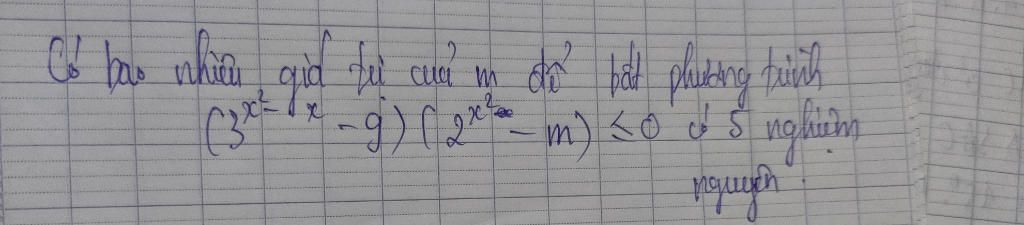 Có bao nhiêu giá trị của m để bất phương trình
(3^{x^2 - x} - 9)(2^{x^2} - m) ≤ 0 có 5 nghiệm
nguyên.